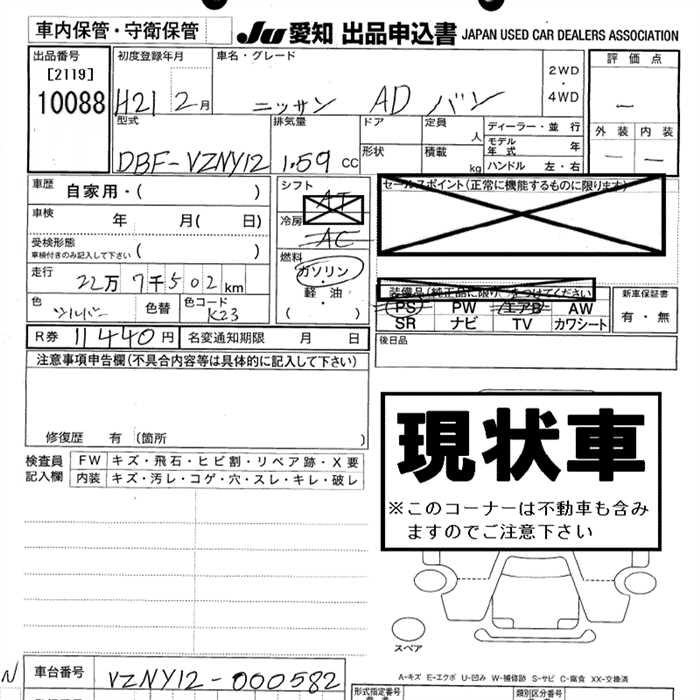 車内保管・守衛保管
JU 愛知 出品申込書 JAPAN USED CAR DEALERS ASSOCIATION
出品番号
[2119]
10088
初度登録年月
H21 2月
車名・グレード
ニッサン AD バン
2WD
・
4WD
評価点
—
外装 内装
— —
型式
DBF-VZNY12
排気量
1.59 CC
ドア
定員
人
形状
積載
kg
ディーラー・並行
モデル年式 年
ハンドル 左・右
車歴 自家用・( )
車検 年 月( 日)
受検形態
車検付きのみ記入して下さい ( )
走行
22万7千502km
色
シルバー
色替
色コード
K23
シフト
AT
冷房
AC
燃料
ガソリン
・
軽油
( )
セールスポイント(正常に機能するものに限ります)
装備品(純正品に限り をつけてください
PS PW エアB AW
SR ナビ TV カワシート
新車保証書
有・無
R券 11440円
名変通知期限 月 日
後日品
注意事項申告欄(不具合内容等は具体的に記入して下さい)
修復歴 有 (箇所 )
検査員
記入欄
FW キズ・飛石・ヒビ割・リペア跡・X要
内装 キズ・汚レ・コゲ・穴・スレ・キレ・破レ
現状車
※このコーナーは不動車も含み
ますのでご注意下さい
スペア
A-キズ E-エクボ U-凹み W-補修跡 S-サビ C-腐食 XX-交換済
N
車台番号 VZNY12-000582
形式指定番号
類別区分番号